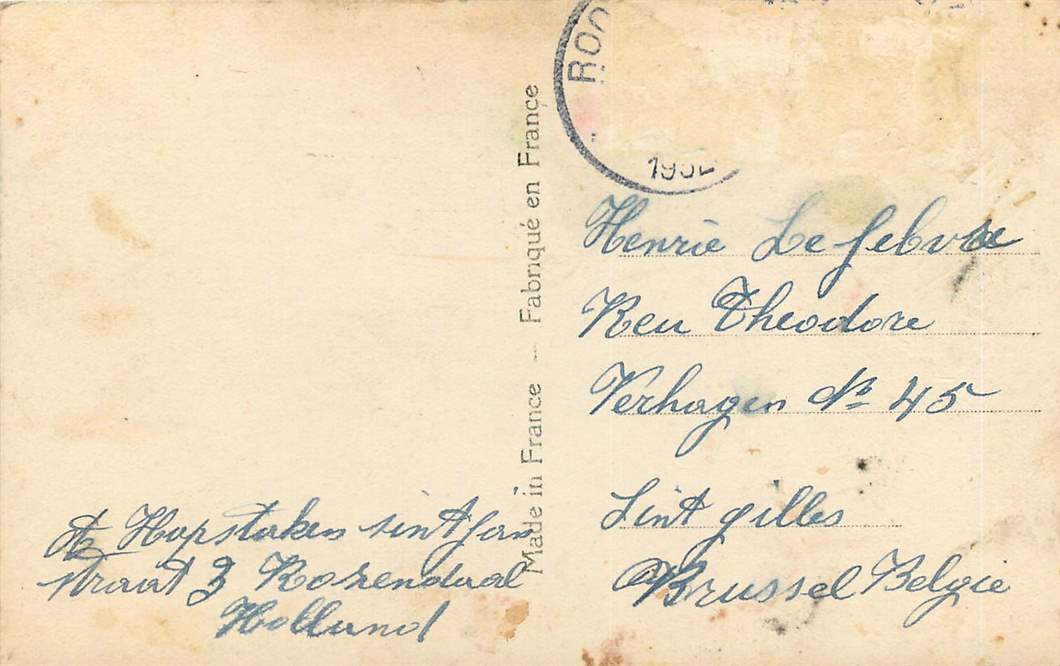 Hopstaken sint Jan
straat 3 Rozendaal
Hollund
Made in France — Fabriqué en France
ROO
1952
Henrie Lefebvre
Reu Theodore
Verhagen No 45
Sint gilles
Brussel Belgie